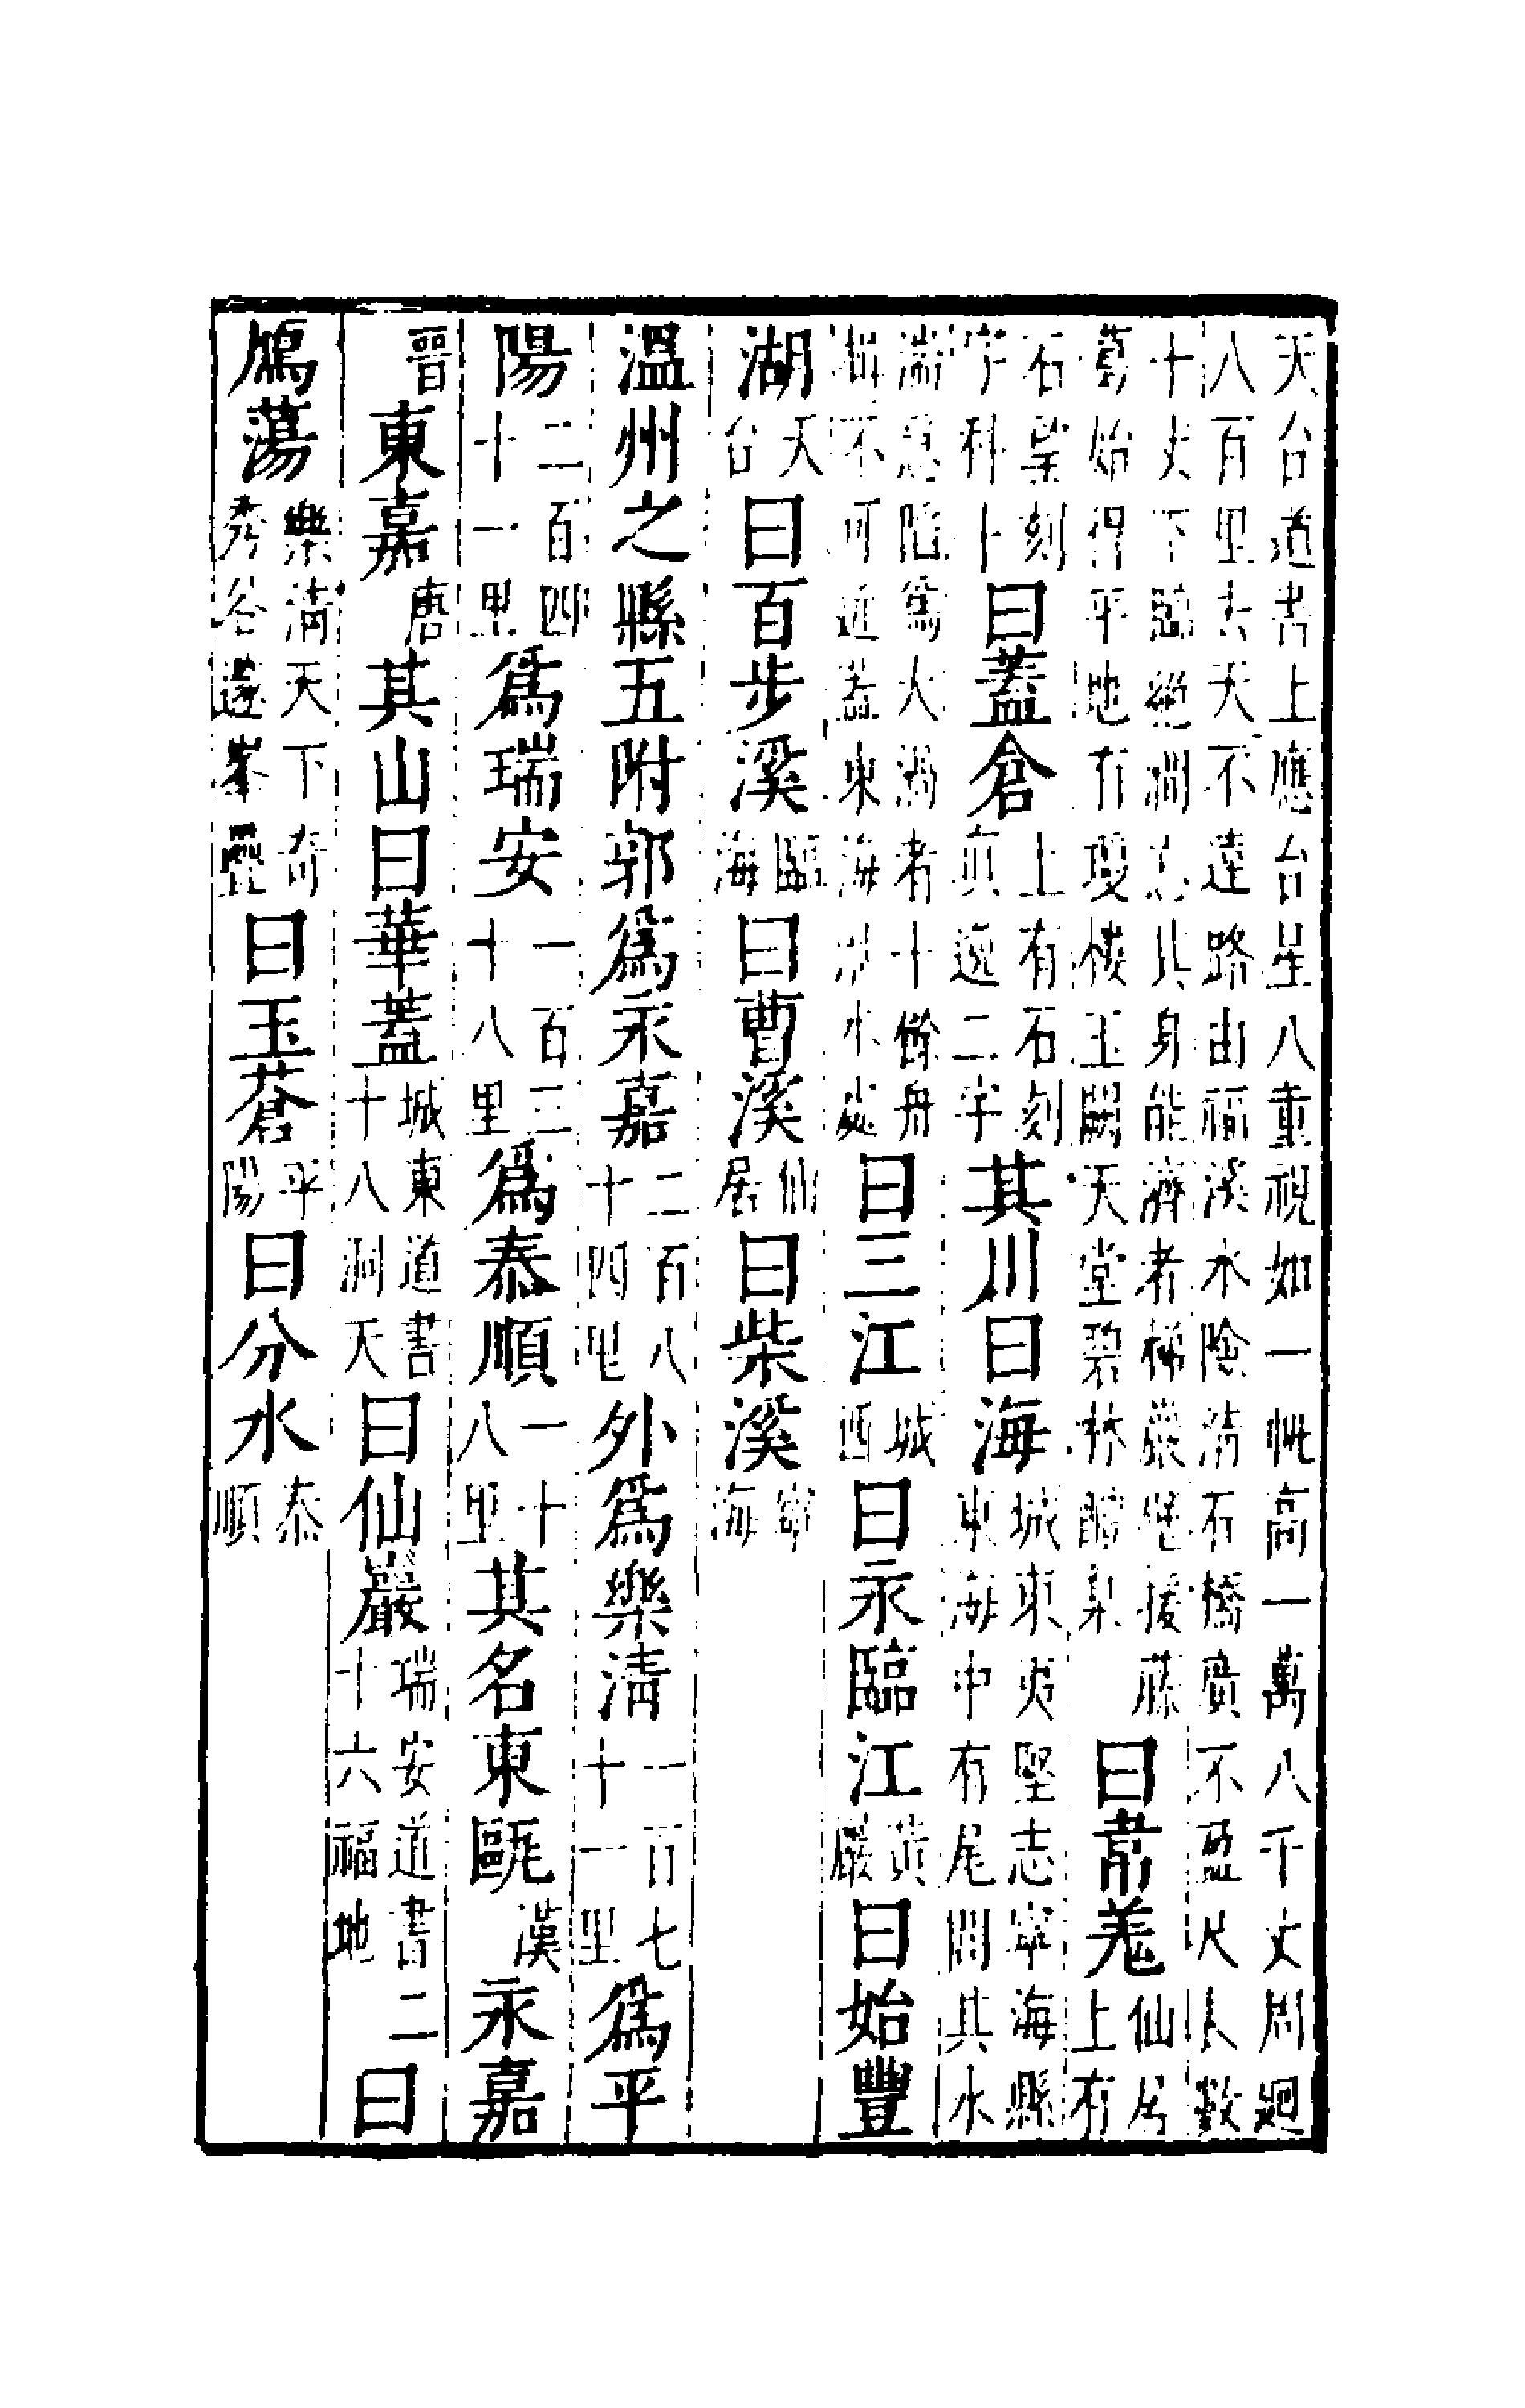 天台道書上應台星八重視如一帆高一萬八千丈周廻八百里去天不遠路由福溪水險清石橋廣不盈尺長數
十丈下臨絶澗忘其身能濟者梯巖壁援藤葛始得平地有瓊樓玉闕天堂碧林醴泉曰韋羌仙居上有
石壁刻字科斗曰蓋倉上有石刻真逸二字其川曰海城東夾堅志寧海縣東海中有尾閭其水
湍急陷爲大渦者十餘舟楫不可近蓋東海洩水處曰三江城西曰永臨江黃巖曰始豐
湖天台曰百步溪臨海曰曹溪仙居曰柴溪寧海
溫州之縣五附郭爲永嘉二百八十四里外爲樂清一百七十一里爲平
陽二百四十一里爲瑞安一百三十八里爲泰順一十八里其名東甌漢永嘉
晉東嘉唐其山曰華蓋城東道書十八洞天曰仙巖瑞安道書二十六福地曰
鴈蕩樂清天下奇秀谷邃峯疊曰玉蒼平陽曰分水泰順